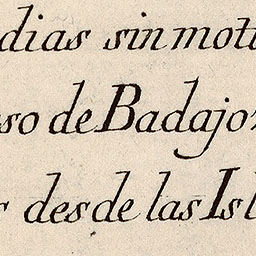 dias sin mot
so de Badajo
s desde las Isl